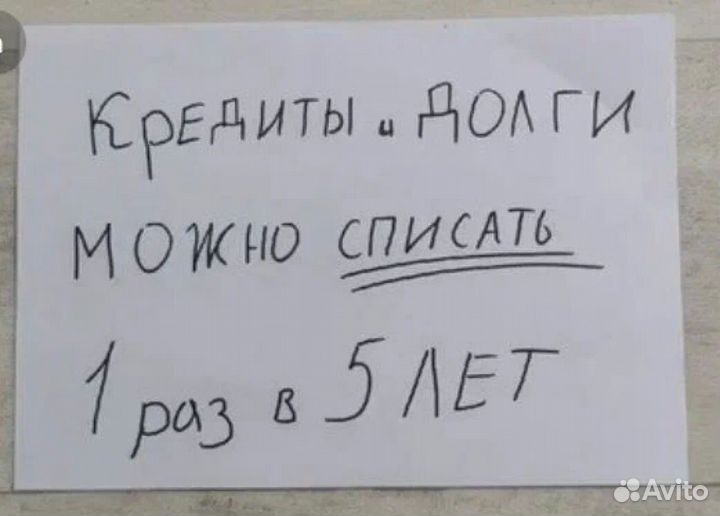 Кредиты и долги
можно списать
1 раз в 5 лет
Avito